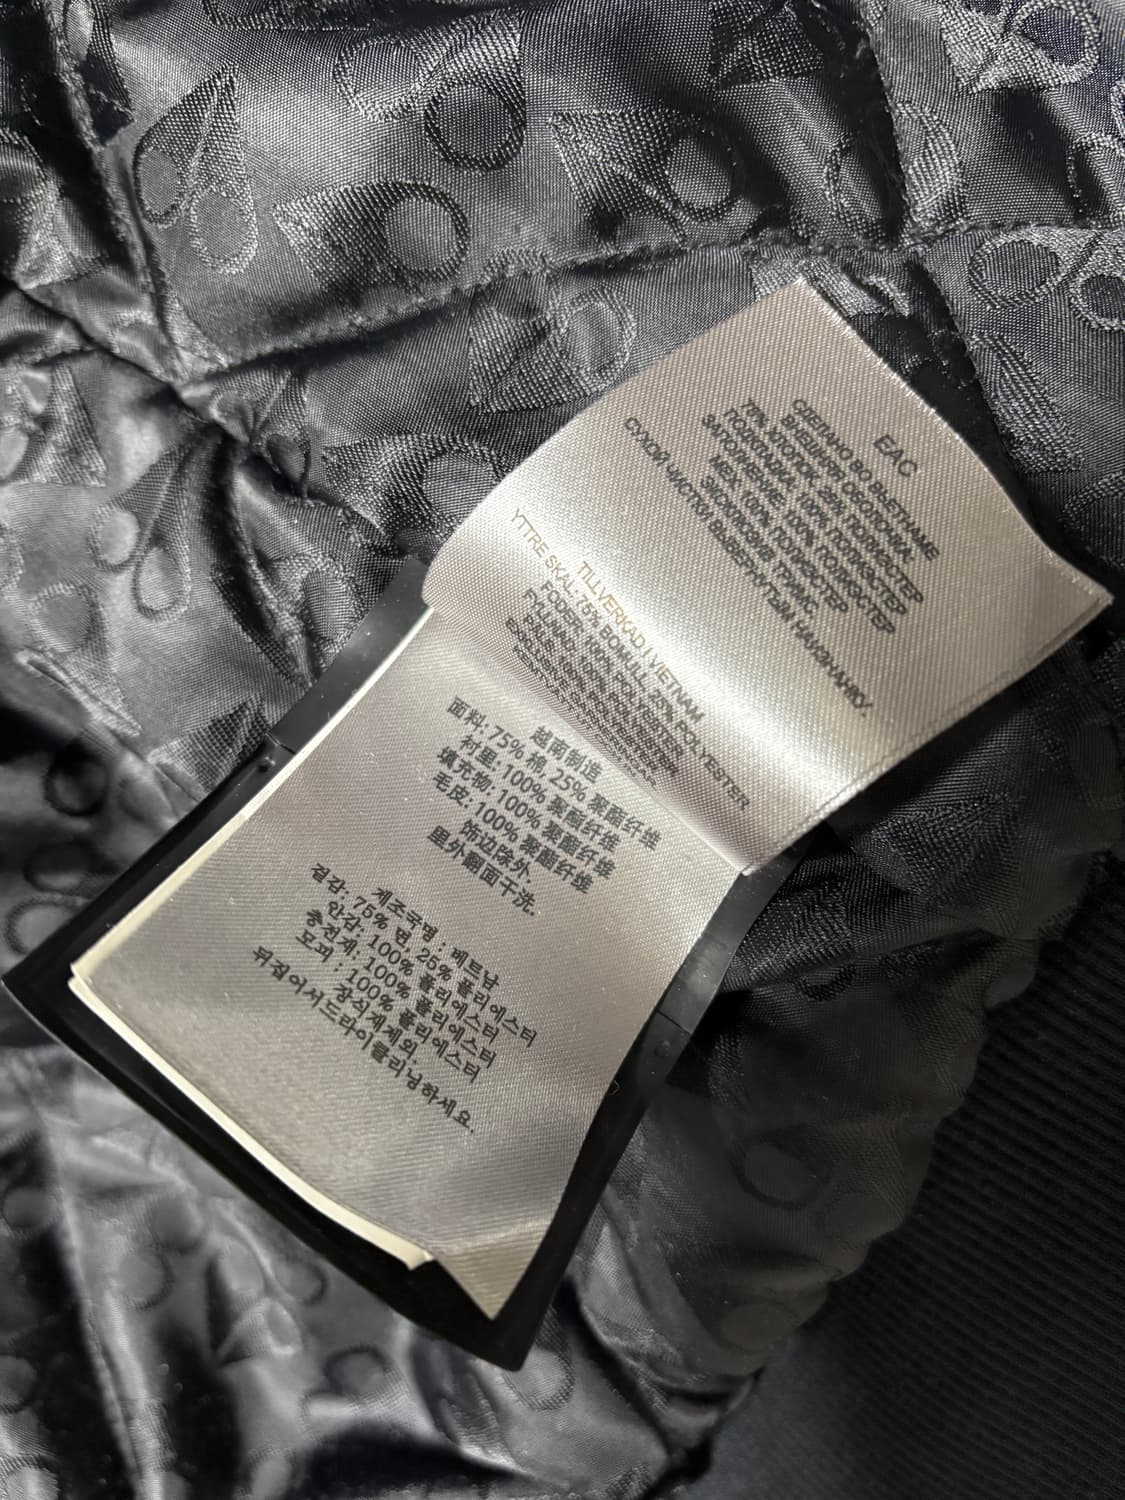 EAC
СДЕЛАНО ВО ВЬЕТНАМЕ
ВНЕШНЯЯ ОБОЛОЧКА:
75% ХЛОПОК, 25% ПОЛИЭСТЕР
ПОДКЛАДКА: 100% ПОЛИЭСТЕР
ЗАПОЛНЕНИЕ: 100% ПОЛИЭСТЕР
МЕХ: 100% ПОЛИЭСТЕР
ЭКСКЛЮЗИВ ТРИМС.
СУХОЙ ЧИСТКИ ВЫВЕРНУТЫМ НАИЗНАНКУ.
TILLVERKAD I VIETNAM
YTTRE SKAL: 75% BOMULL, 25% POLYESTER
FODER: 100% POLYESTER
FYLLNING: 100% POLYESTER
PÄLS: 100% POLYESTER
越南制造
面料: 75% 棉, 25% 聚酯纤维
衬里: 100% 聚酯纤维
填充物: 100% 聚酯纤维
毛皮: 100% 聚酯纤维
饰边除外.
里外翻面干洗.
제조국명 : 베트남
겉감: 75% 면, 25% 폴리에스터
안감: 100% 폴리에스터
충전재: 100% 폴리에스터
모피 : 100% 폴리에스터
장식제제외.
뒤집어서드라이클리닝하세요.